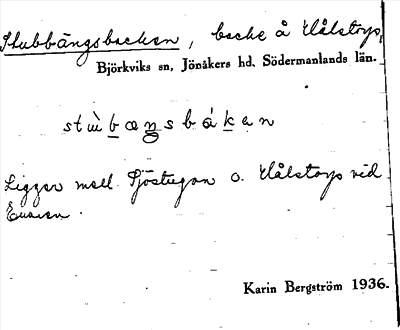 Stubbängsbacken, backe å Hålstorp,
Björkviks sn, Jönåkers hd, Södermanlands län.
stu̇̀bæŋsbákan
Ligger mell. Sjöstugan o. Hålstorp vid
Karin Bergström 1936.